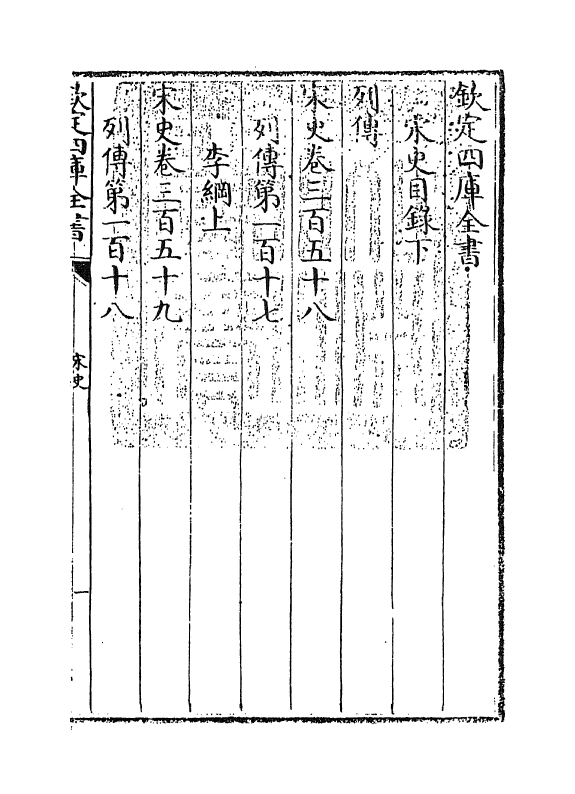 欽定四庫全書
宋史目錄下
列傳
宋史卷三百五十八
列傳第一百十七
李綱上
宋史卷三百五十九
列傳第一百十八
欽定四庫全書
宋史
一